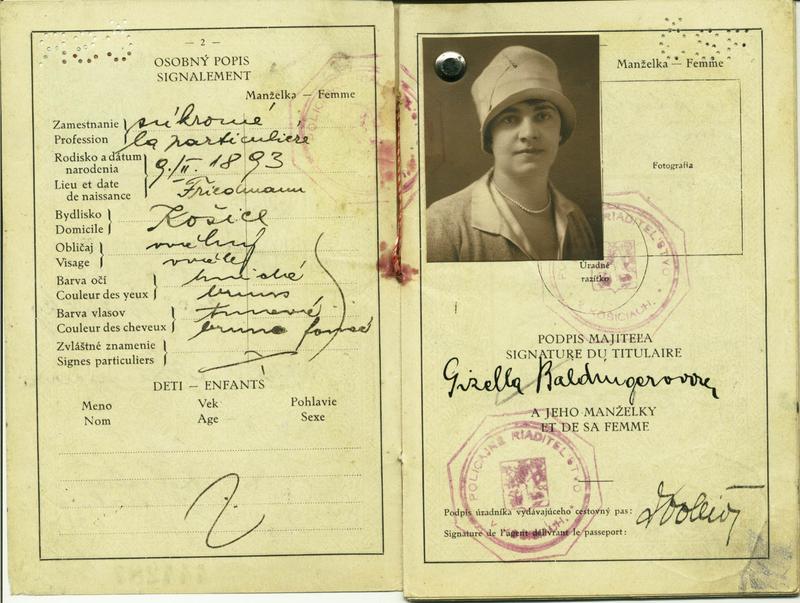 — 2 —
OSOBNÝ POPIS
SIGNALEMENT
Manželka — Femme
Zamestnanie súkromé
Profession la particulière
Rodisko a dátum narodenia 9. II. 1893
Lieu et date de naissance Friedmann
Bydlisko
Domicile Košice
Obličaj
Visage
Barva očí
Couleur des yeux bruns
Barva vlasov
Couleur des cheveux bruns foncé
Zvláštné znamenie
Signes particuliers
DETI — ENFANTS
Meno Vek Pohlavie
Nom Age Sexe
Manželka — Femme
Fotografia
Úradné
razítko
POLICAJNÉ RIADITEĽSTVO
V KOŠICIACH.
PODPIS MAJITEĽA
SIGNATURE DU TITULAIRE
Gizella Baldingerovva
A JEHO MANŽELKY
ET DE SA FEMME
POLICAJNÉ RIADITEĽSTVO
V KOŠICIACH.
Podpis úradníka vydávajúceho cestovný pas:
Signature de l'agent délivrant le passeport: